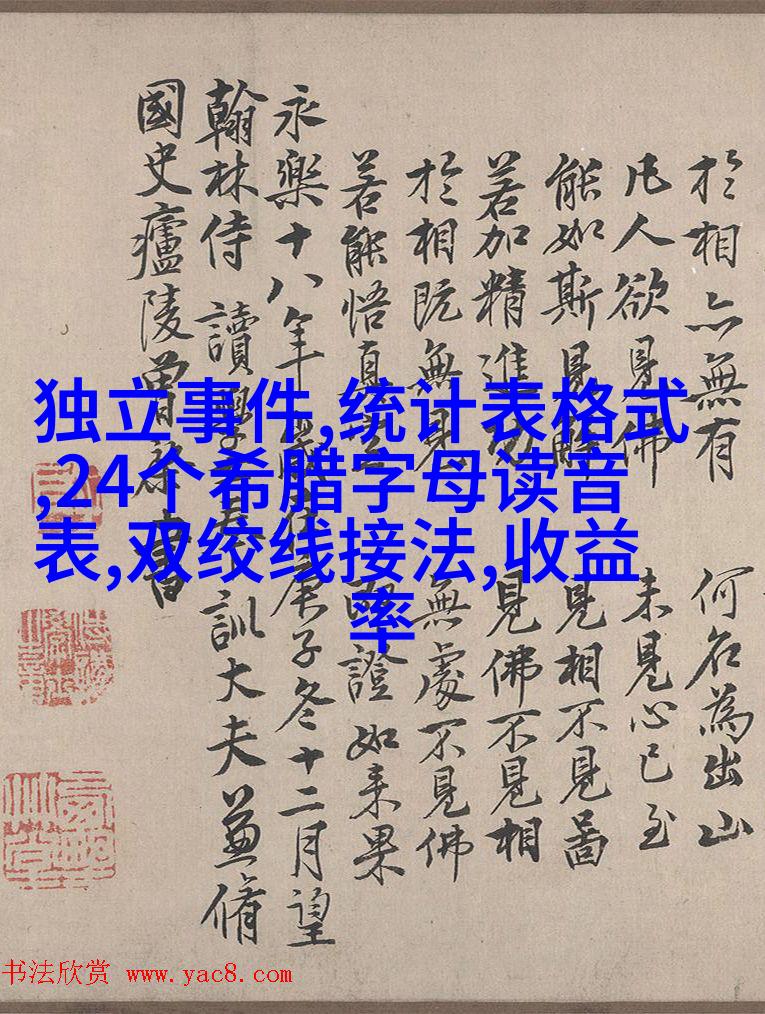 於相亦無有 何名為出山
凡人欲見佛 未見心已至
能如斯見解 見相不見啚
若加精進力 見佛不見相
於相既無見 無處不見佛
若能悟真 證如来果
永樂十八年歲次庚子冬十二月望
翰林侍讀學士奉訓大夫兼脩
國史廬陵曾棨書
独立事件,统计表格式
,24个希腊字母读音
表,双绞线接法,收益
率
书法欣赏 www.yac8.com